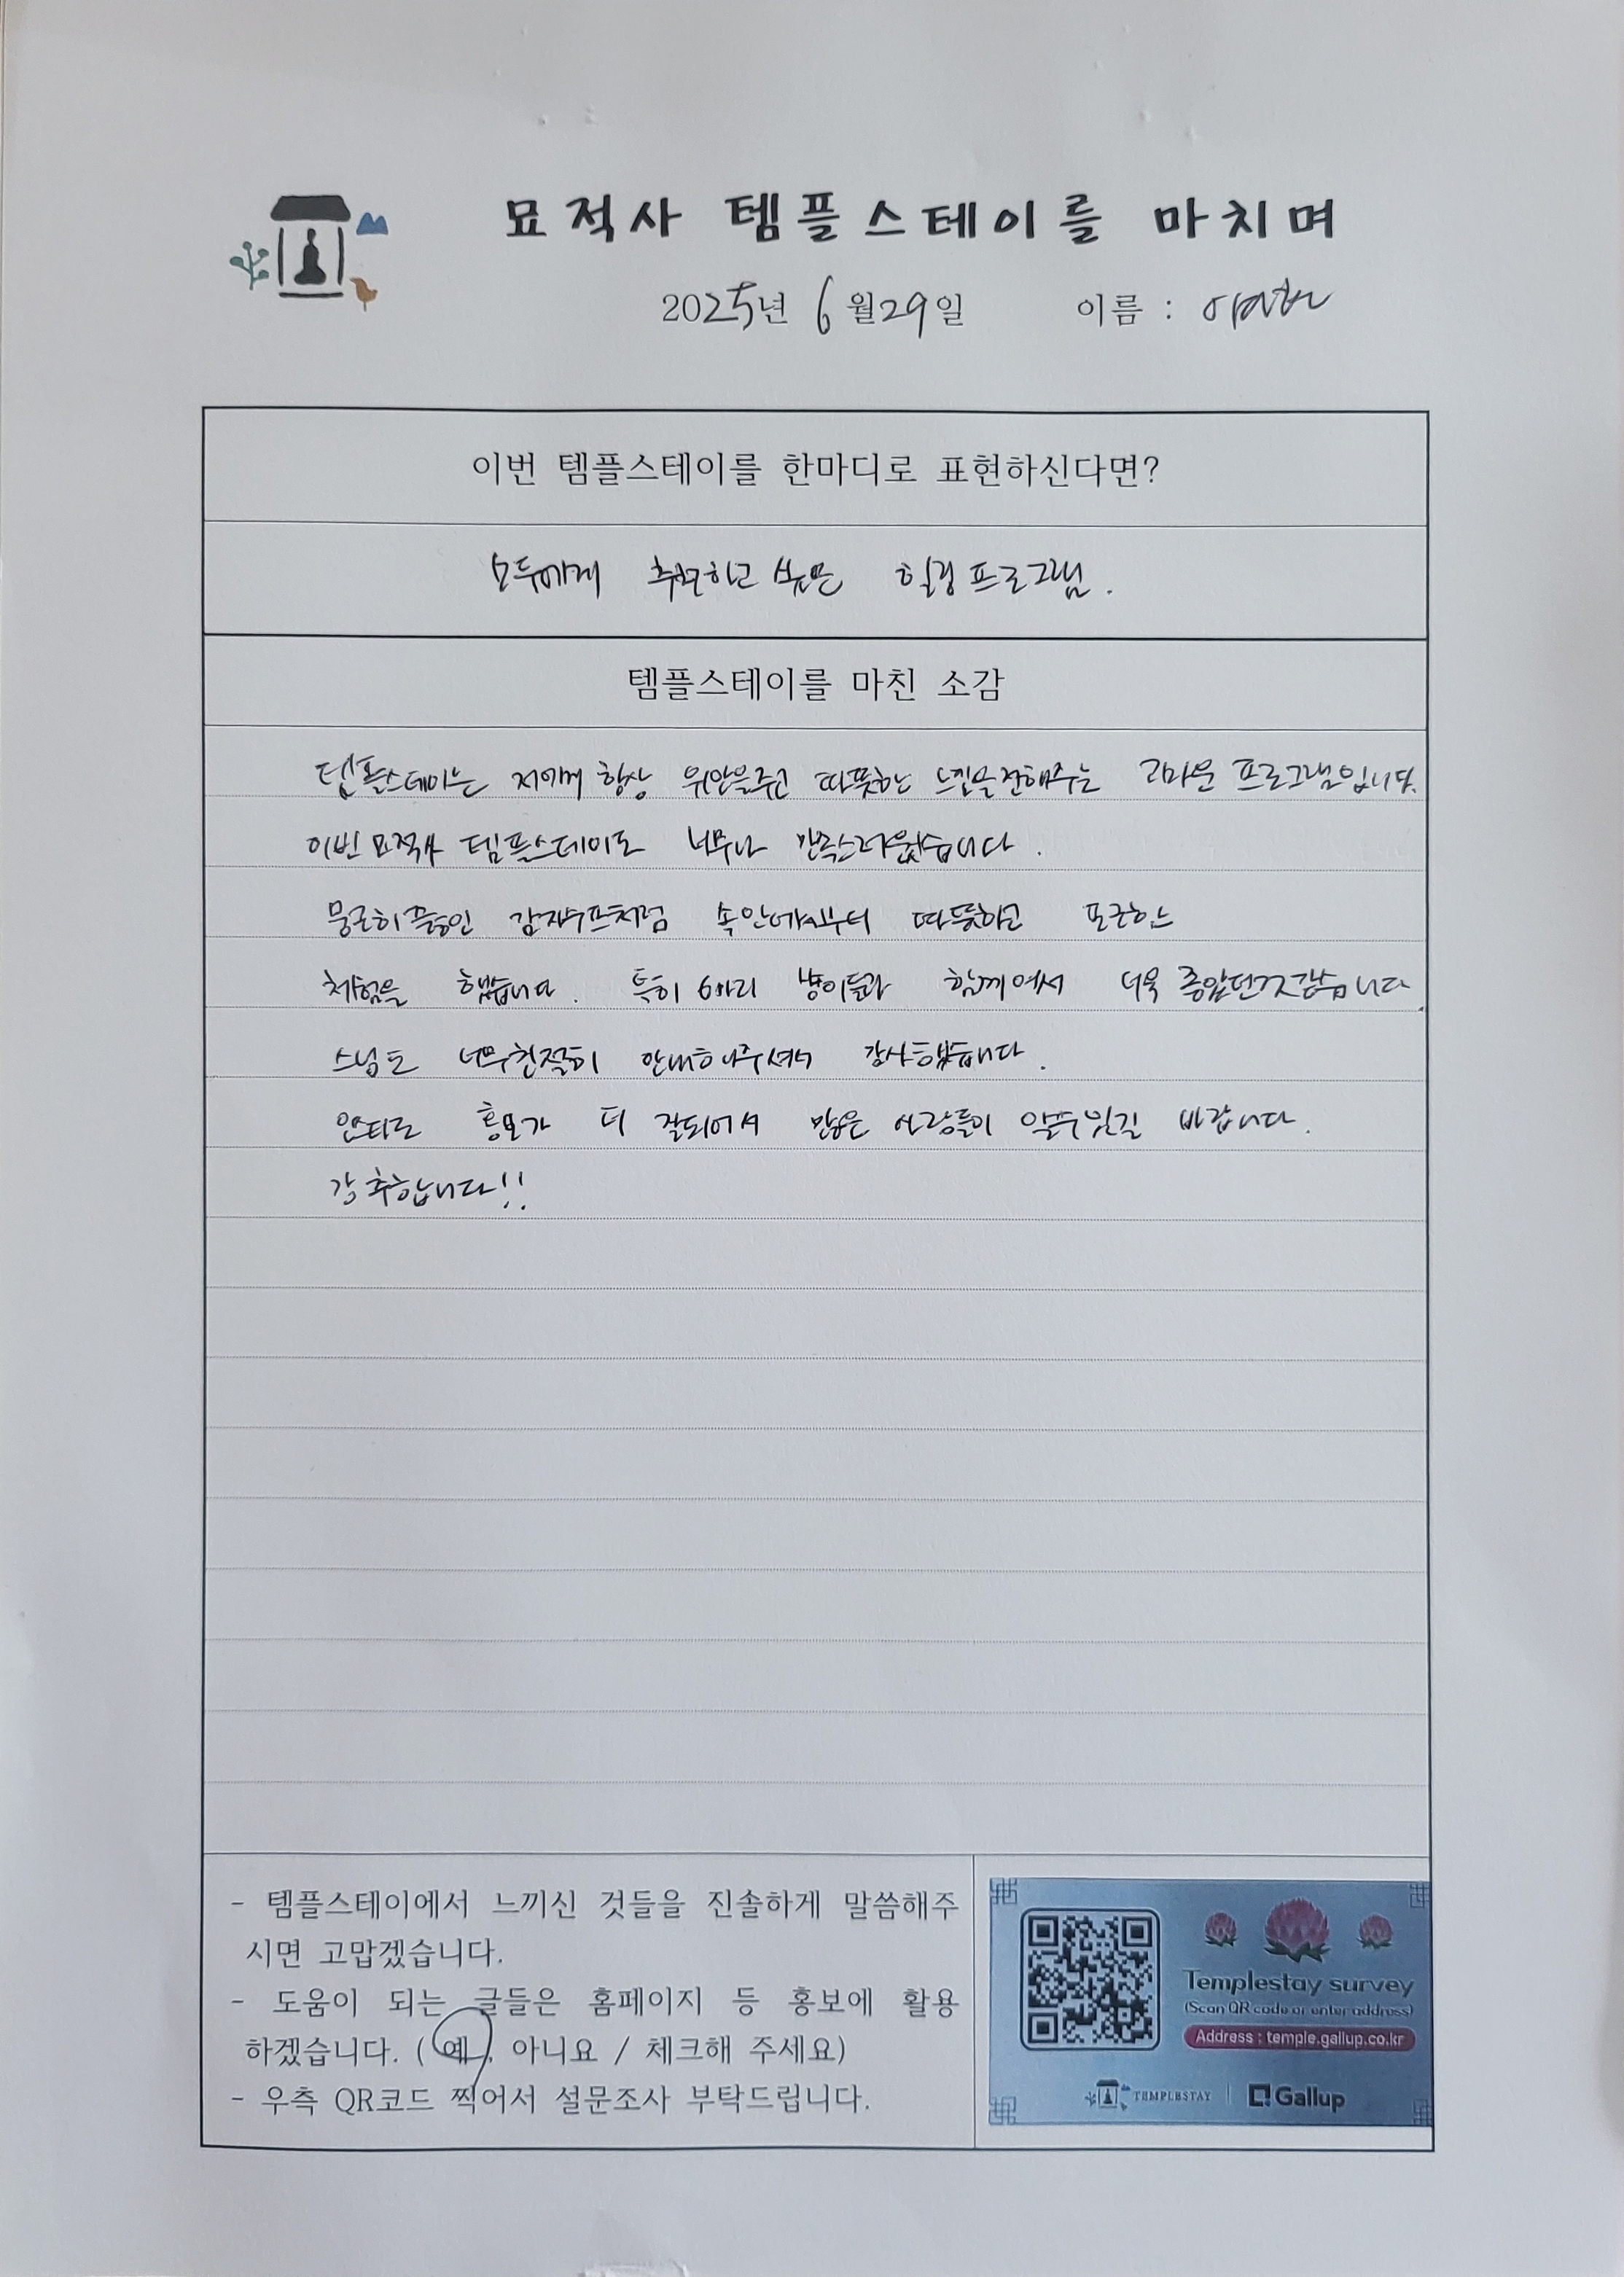 묘적사 템플스테이를 마치며
2025년 6월 29일 이름 :
이번 템플스테이를 한마디로 표현하신다면?
모두에게 추천하고 싶은 힐링 프로그램.
템플스테이를 마친 소감
템플스테이는 저에게 항상 위안을주고 따뜻한 느낌을전해주는 고마운 프로그램입니다.
이번 묘적사 템플스테이도 너무나 만족스러웠습니다.
뭉근히끓인 감자수프처럼 속안에서부터 따뜻하고 포근한
체험을 했습니다. 특히 6마리 냥이들과 함께여서 더욱 좋았던것같습니다.
스님도 너무친절히 안내해주셔서 감사했습니다.
홍보가 더 잘되어서 많은 사람들이 알수있길 바랍니다.
강추합니다!!
- 템플스테이에서 느끼신 것들을 진솔하게 말씀해주
시면 고맙겠습니다.
- 도움이 되는 글들은 홈페이지 등 홍보에 활용
하겠습니다. ( 예 , 아니요 / 체크해 주세요)
- 우측 QR코드 찍어서 설문조사 부탁드립니다.
Templestay survey
(Scan QR code or enter address)
Address : temple.gallup.co.kr
TEMPLESTAY Gallup